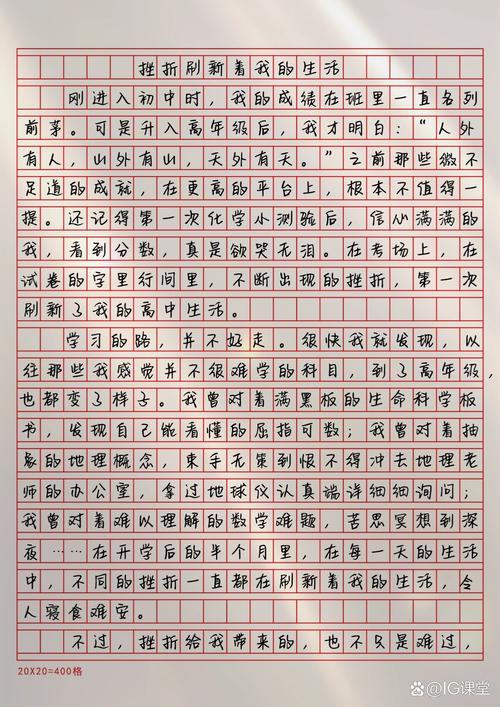 挫折刷新着我的生活
刚进入初中时，我的成绩在班里一直名列
前茅。可是升入高年级后，我才明白：“人外
有人，山外有山，天外有天。”之前那些微不
足道的成就，在更高的平台上，根本不值得一
提。还记得第一次化学小测验后，信心满满的
我，看到分数，真是欲哭无泪。在考场上，在
试卷的字里行间里，不断出现的挫折，第一次
刷新了我的高中生活。
学习的路，并不好走。很快我就发现，以
往那些我感觉并不很难学的科目，到了高年级，
也都变了样子。我曾对着满黑板的生命科学板
书，发现自己能看懂的屈指可数；我曾对着抽
象的地理概念，束手无策到恨不得冲去地理老
师的办公室，拿过地球仪认真端详细细询问；
我曾对着难以理解的数学难题，苦思冥想到深
夜……在开学后的半个月里，在每一天的生活
中，不同的挫折一直都在刷新着我的生活，令
人寝食难安。
不过，挫折给我带来的，也不只是难过，
20X20=400格
@IG课堂